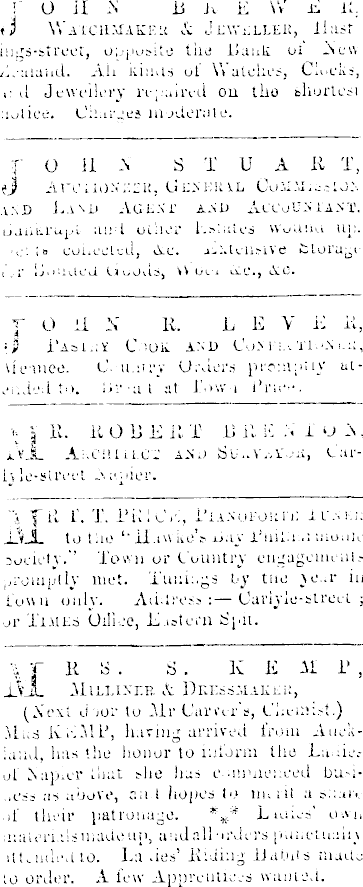 JOHN BREWER,
WATCHMAKER & JEWELLER, Hast-
ings-street, opposite the Bank of New
Zealand. All kinds of Watches, Clocks,
and Jewellery repaired on the shortest
notice. Charges moderate.
JOHN STUART,
AUCTIONEER, GENERAL COMMISSION
AND LAND AGENT AND ACCOUNTANT.
Bankrupt and other Estates wound up.
Debts collected, &c. Extensive Storage
for Bonded Goods, Wool &c., &c.
JOHN R. LEVER,
PASTRY COOK AND CONFECTIONER,
Meanee. Country Orders promptly at-
tended to. Bread at Town Price.
MR. ROBERT BRENTON,
ARCHITECT AND SURVEYOR, Car-
lyle-street Napier.
MR T. T. PRICE, PIANOFORTE TUNER
to the "Hawke's Bay Philharmonic
Society." Town or Country engagements
promptly met. Tunings by the year in
Town only. Address:— Carlyle-street;
or TIMES Office, Eastern Spit.
MRS. S. KEMP,
MILLINER & DRESSMAKER,
(Next door to Mr Carver's, Chemist.)
MRS KEMP, having arrived from Auck-
land, has the honor to inform the Ladies
of Napier that she has commenced busi-
ness as above, and hopes to merit a share
of their patronage. *** Ladies' own
materials made up, and all orders punctually
attended to. Ladies' Riding Habits made
to order. A few Apprentices wanted.